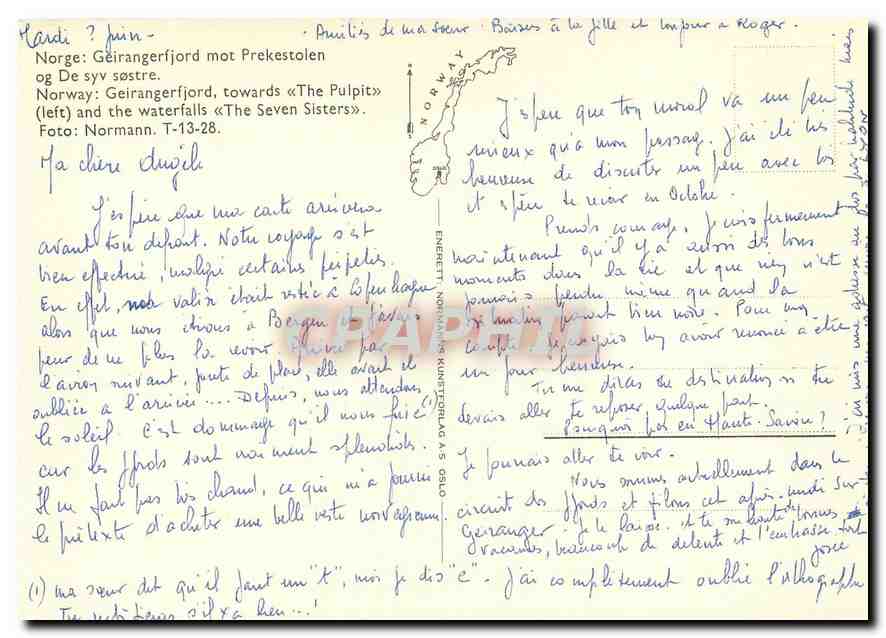 Mardi ? juin -
. Amitiés de ma soeur. Baisers à la fille et toujours à Roger.
Norge: Geirangerfjord mot Prekestolen
og De syv søstre.
Norway: Geirangerfjord, towards «The Pulpit»
(left) and the waterfalls «The Seven Sisters».
Foto: Normann. T-13-28.
NORWAY
Ma chère Angèle
J'espère que ma carte arrivera
avant ton départ. Notre voyage s'est
bien effectué, malgré certaines péripéties.
En effet, ma valise était restée à Copenhague
alors que nous étions à Bergen et j'avais
peur de ne plus la revoir. Arrivée par
l'avion suivant, faute de place, elle avait été
oubliée à l'arrivée .... Depuis, nous attendons
le soleil. C'est dommage qu'il nous fuie (1)
car les fjords sont vraiment splendides.
Il ne fait pas très chaud, ce qui m'a fourni
le prétexte d'acheter une belle veste norvégienne.
ENERETT: NORMANNS KUNSTFORLAG A.S OSLO
CPAPHIL
J'espère que ton moral va un peu
mieux qu'à mon passage. J'ai été très
heureuse de discuter un peu avec toi
et espère te revoir en Octobre.
Prends courage, je crois fermement
maintenant qu'il y a aussi des bons
moments dans la vie et que rien n'est
jamais perdu même quand la
paraît bien noire. Pour mon
compte je croyais bien avoir renoncé à être
un jour heureuse.
Tu me diras ta destination si tu
devais aller te reposer quelque part.
Pourquoi pas en Haute-Savoie?
Je pourrais aller te voir.
Nous sommes actuellement dans le
circuit des fjords et filons cet après-midi sur
Geiranger. Je te laisse et te souhaite de bonnes
vacances, beaucoup de détente et t'embrasse fort
Josée
J'ai mis mon adresse au dos par habitude mais
(1) ma soeur dit qu'il faut un "t", moi je dis "e". J'ai complètement oublié l'orthographe
s'il y a lieu...!